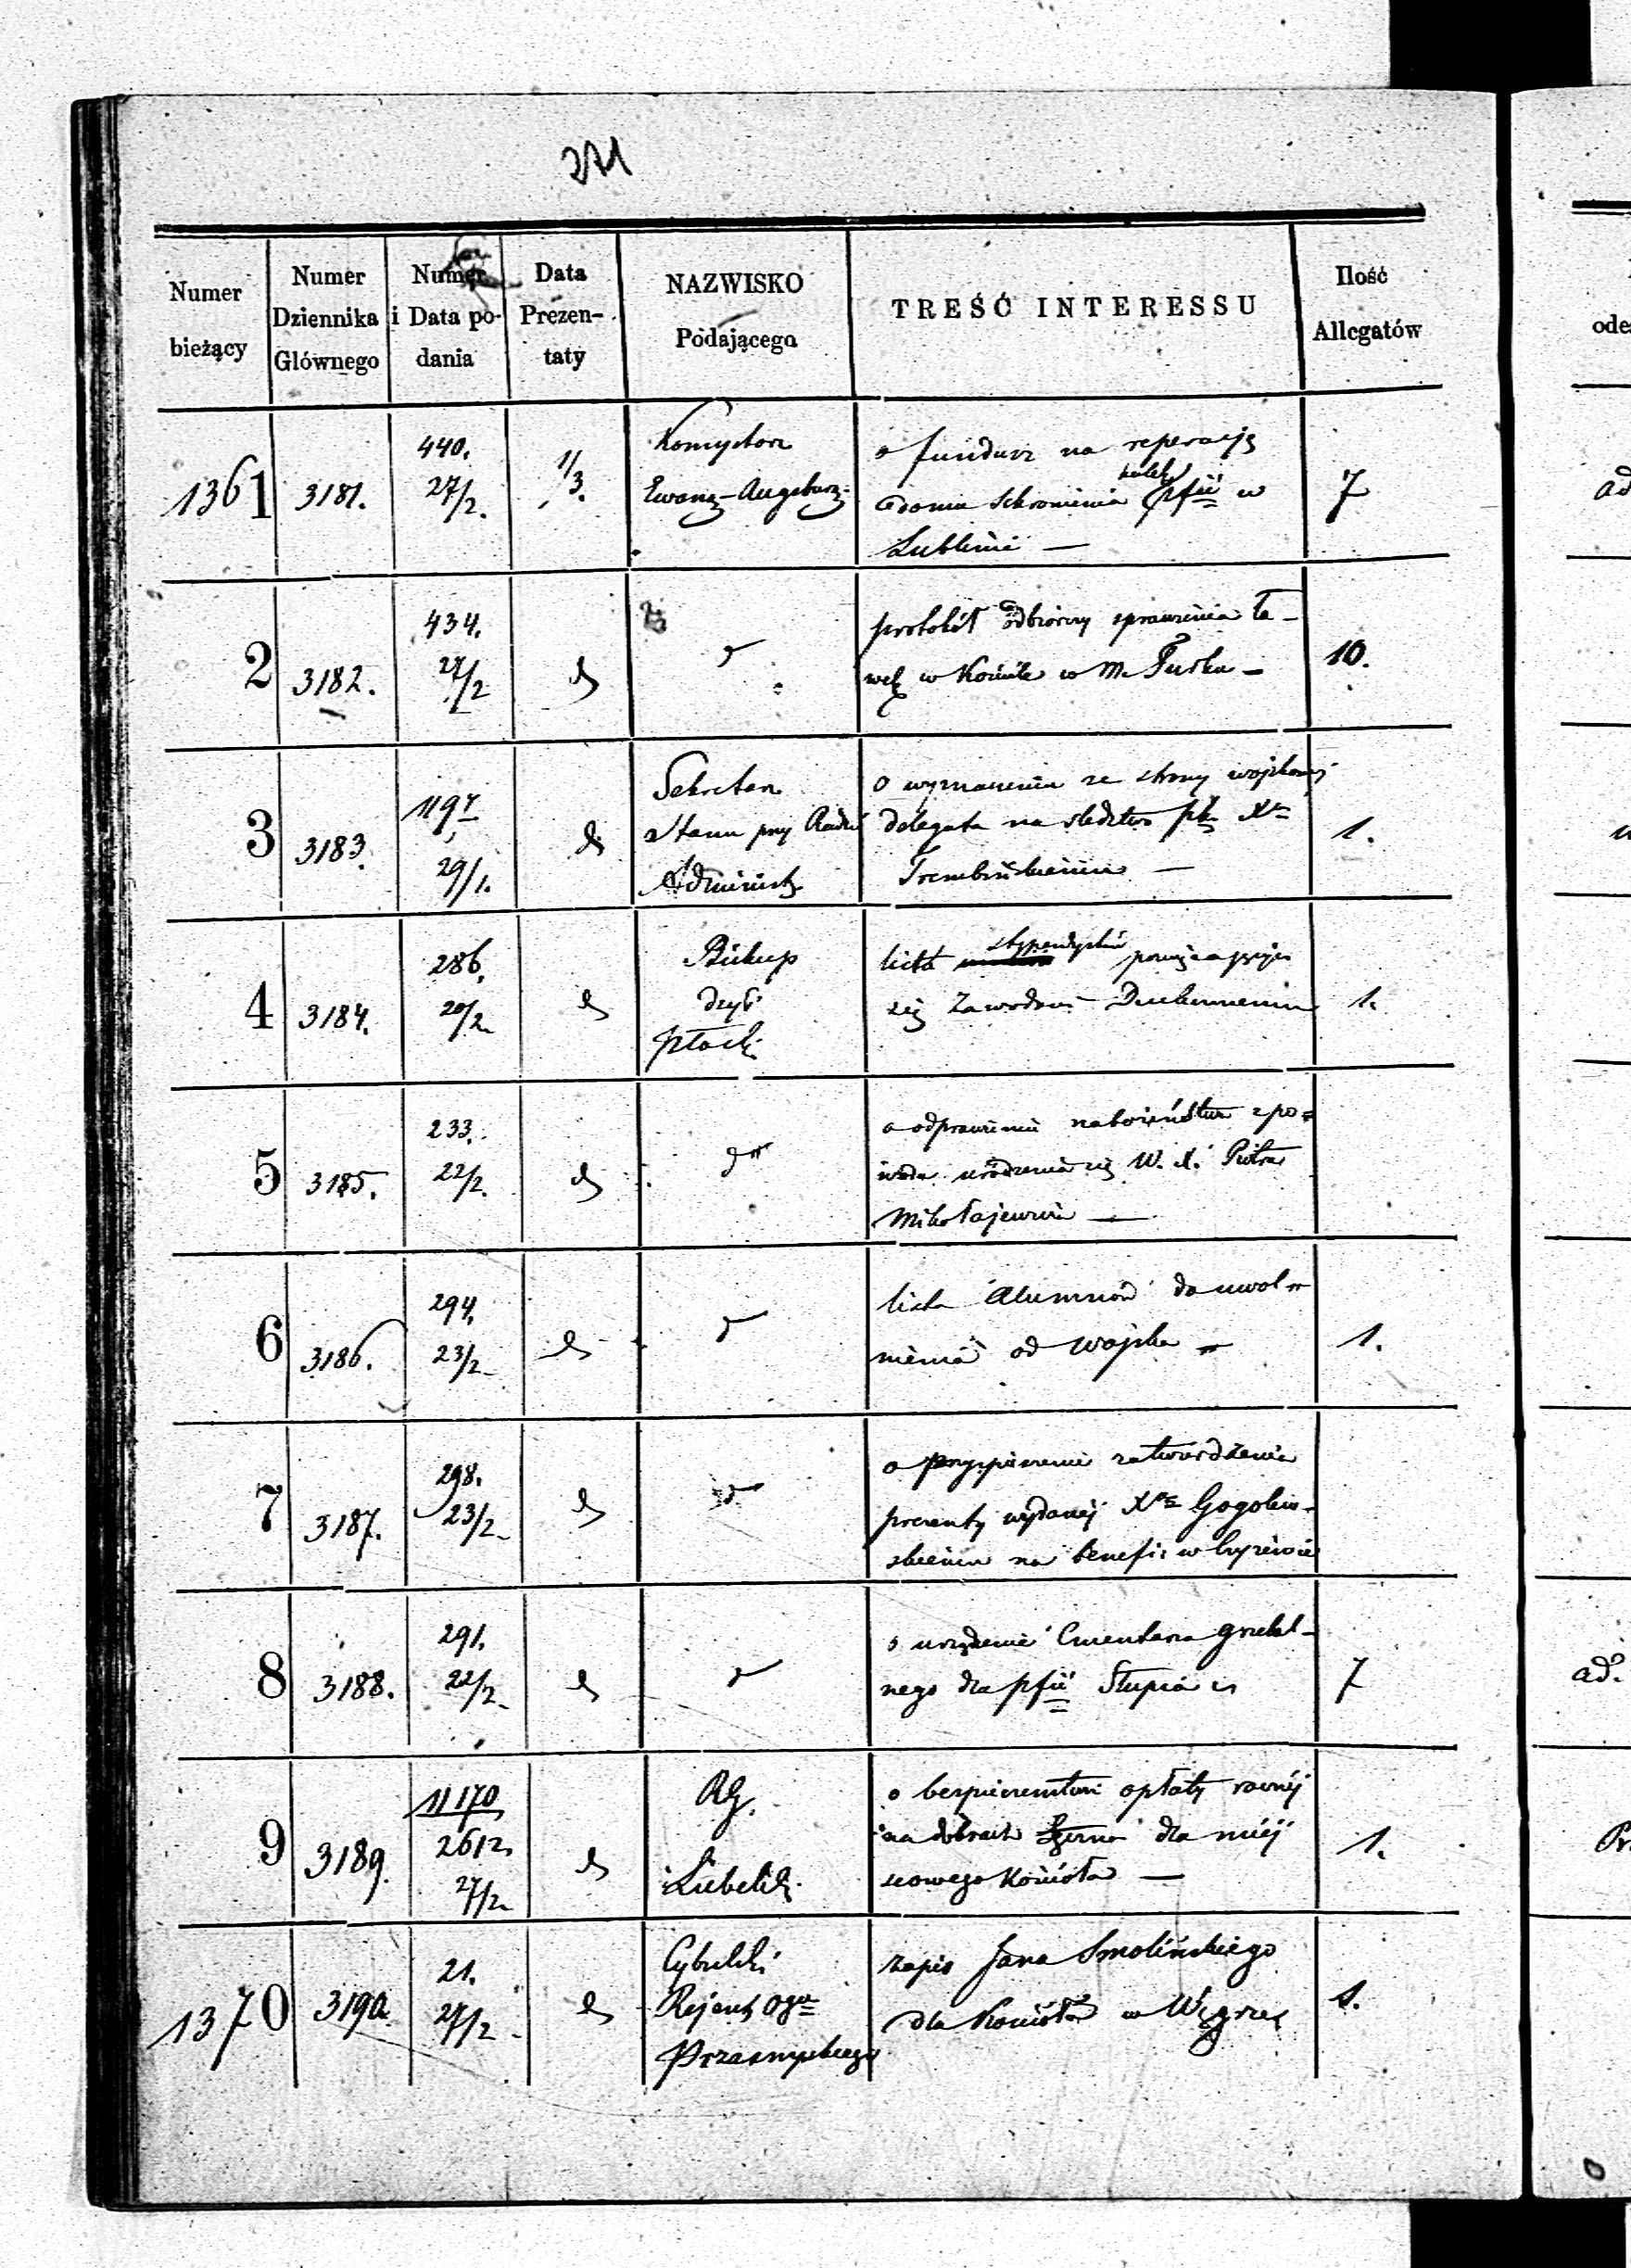 271
Numer bieżący
Numer Dziennika Głównego
Numer i Data podania
Data Prezentaty
NAZWISKO Podającego
TREŚĆ INTERESSU
Ilość Allegatów
1361
3181.
440.
27/2.
1/3.
Konsystorz
Ewang-Augsburg:
o fundusz na reperacją
domu schronienia pfii w
Lublinie —
7
2
3182.
434.
27/2
protokół odbiorczy sprawienia ła-
wek w Kościele w M.
10.
3
3183.
1197
29/1.
Sekretarz
Stanu przy Radzie
Administr
o wyznaczenie ze strony wojskowej
delegata na śledztwo
—
1.
4
3184.
286.
20/2
Biskup
dzyi
płocki
lista stypendystów
się zawodowi Duchownemu
1.
5
3185.
233.
22/2.
o odprawienie nabożeństwa z po-
wodu urodzenia się W. X. Piotra
Mikołajewicza —
6
3186.
294.
23/2
lista Alumnów do uwol-
nienia od wojska
1.
7
3187.
298.
23/2
o przyspieszenie zatwierdzenia
prezenty wydanej Xe Gogolew-
skiemu na benefi: w
8
3188.
291.
22/2
o urządzenie Cmentarza grzebal-
nego dla pfii Słupia
7
9
3189.
11170
2612
27/2
RG.
Lubelski
o bezpieczeństwie opłaty rocznéj
na dobrach dla miéj
scowego Kościoła —
1.
1370
3190.
21.
27/2
Cybulski
Rejent Ogu
Przasnyskiego
zapis Jana Smolińskiego
dla Kościoła w Węgrze
1.